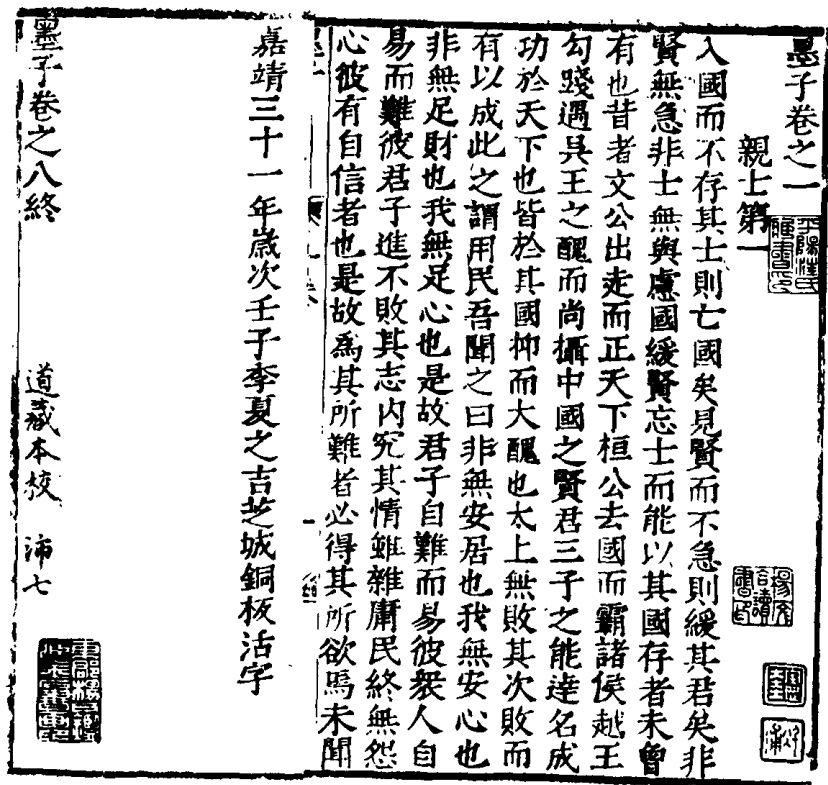 墨子卷之一
親士第一
入國而不存其士則亡國矣見賢而不急則緩其君矣非
賢無急非士無與慮國緩賢忘士而能以其國存者未曾
有也昔者文公出走而正天下桓公去國而霸諸侯越王
勾踐遇吳王之醜而尚攝中國之賢君三子之能達名成
功於天下也皆於其國抑而大醜也太上無敗其次敗而
有以成此之謂用民吾聞之曰非無安居也我無安心也
非無足財也我無足心也是故君子自難而易彼衆人自
易而難彼君子進不敗其志内究其情雖雜庸民終無怨
心彼有自信者也是故爲其所難者必得其所欲焉未聞
嘉靖三十一年歲次壬子季夏之吉芝城銅板活字
墨子卷之八終
道藏本校 沛七